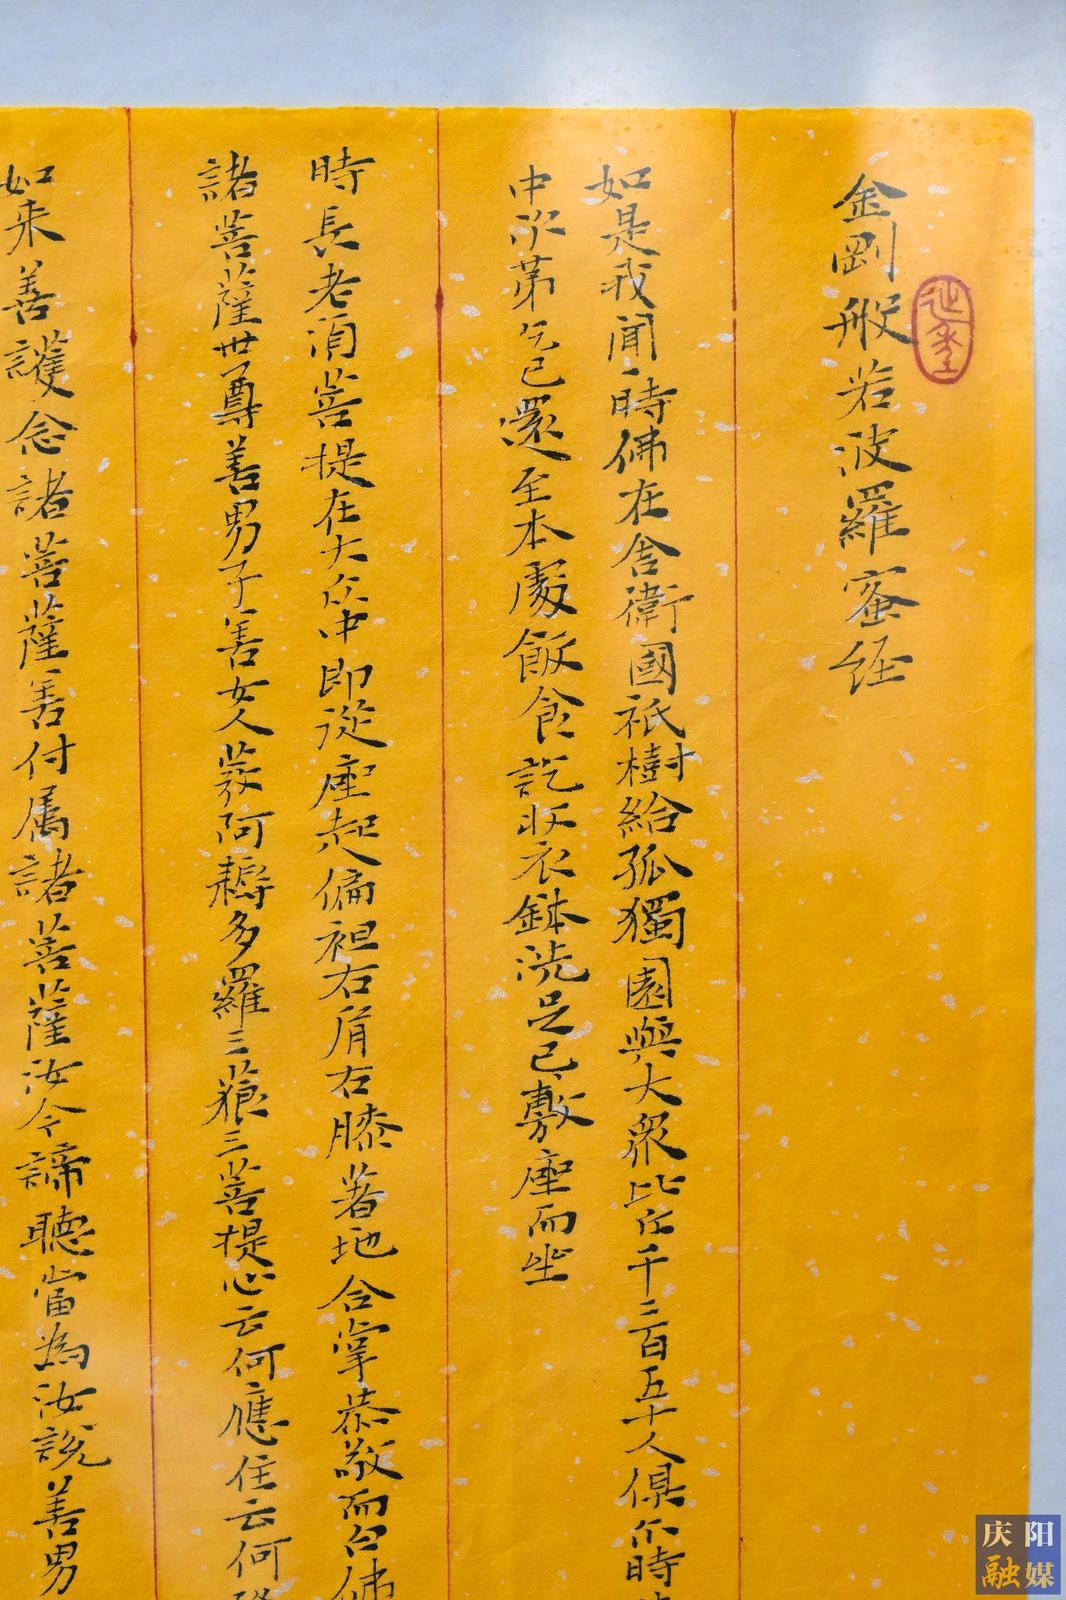 金剛般若波羅蜜经
如是我聞一時佛在舎衛國祇樹給孤獨園與大眾比丘千二百五十人俱尒時
中次第乞已還至本處飯食訖收衣鉢洗足已敷座而坐
時長老須菩提在大众中即從座起偏袒右肩右膝著地合掌恭敬而白佛
諸菩薩世尊善男子善女人發阿耨多羅三藐三菩提心云何應住云何
如来善護念諸菩薩善付属諸菩薩汝今諦聽當為汝說善男
庆阳
融媒